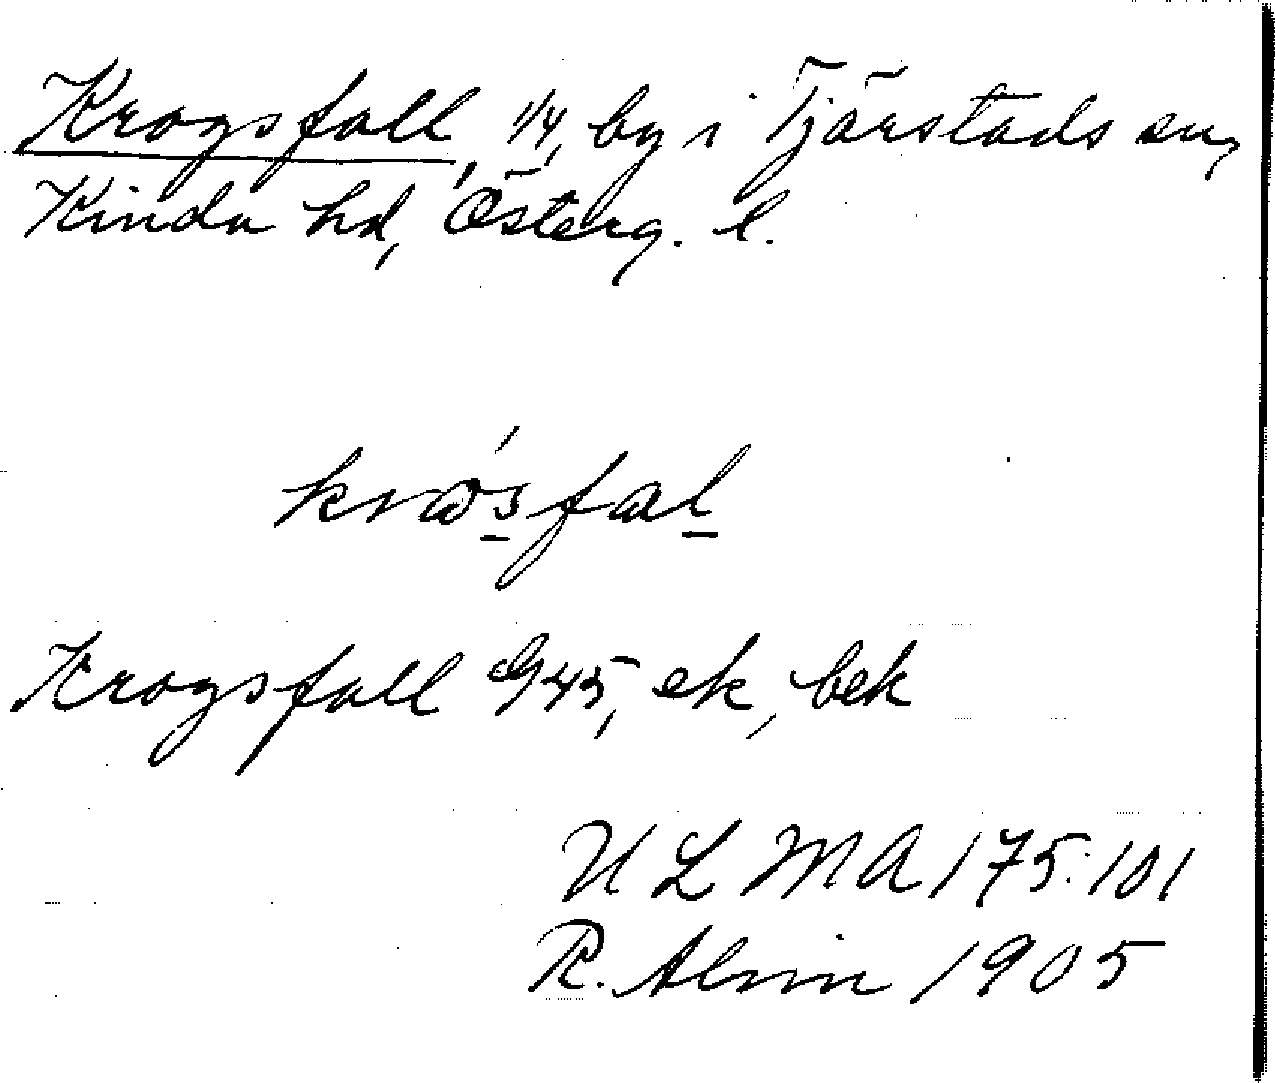 Krogsfall, 1/4, by i Tjärstads sn,
Kinda hd, Österg. l.
krɷ́sfal
Krogsfall G45, ek, bek
ULMA 175:101
R. Alvin 1905